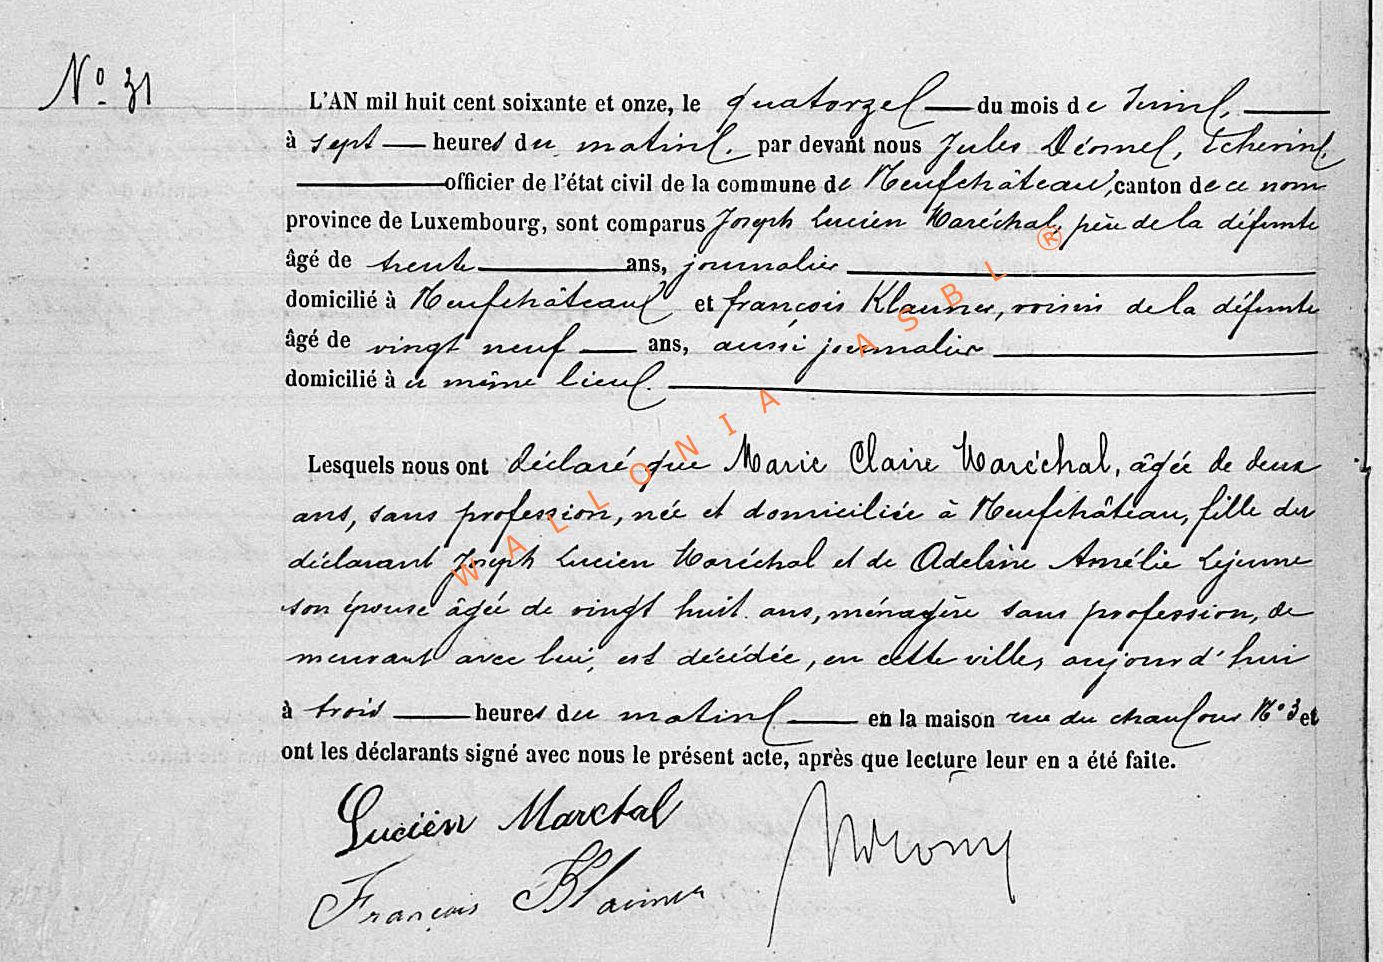 N° 31
L'AN mil huit cent soixante et onze, le quatorze du mois de Juin,
à sept heures du matin. par devant nous Jules Échevin,
officier de l'état civil de la commune de Neufchâteau, canton de ce nom
province de Luxembourg, sont comparus Joseph Lucien Maréchal, père de la défunte
âgé de trente ans, journalier
domicilié à Neufchâteau et françois Klauner, voisin de la défunte
âgé de vingt neuf ans, aussi journalier
domicilié à ce même lieu.
Lesquels nous ont déclaré que Marie Claire Maréchal, âgée de deux
ans, sans profession, née et domiciliée à Neufchâteau, fille du
déclarant Joseph Lucien Maréchal et de Adeline Amélie Lejeune
son épouse âgée de vingt huit ans, ménagère sans profession, de
meurant avec lui, est décédée, en cette ville, aujourd'hui
à trois heures du matin en la maison rue du chaufour N° 3 et
ont les déclarants signé avec nous le présent acte, après que lecture leur en a été faite.
Lucien Marchal
François Klauner
WALLONIA ASBL ®